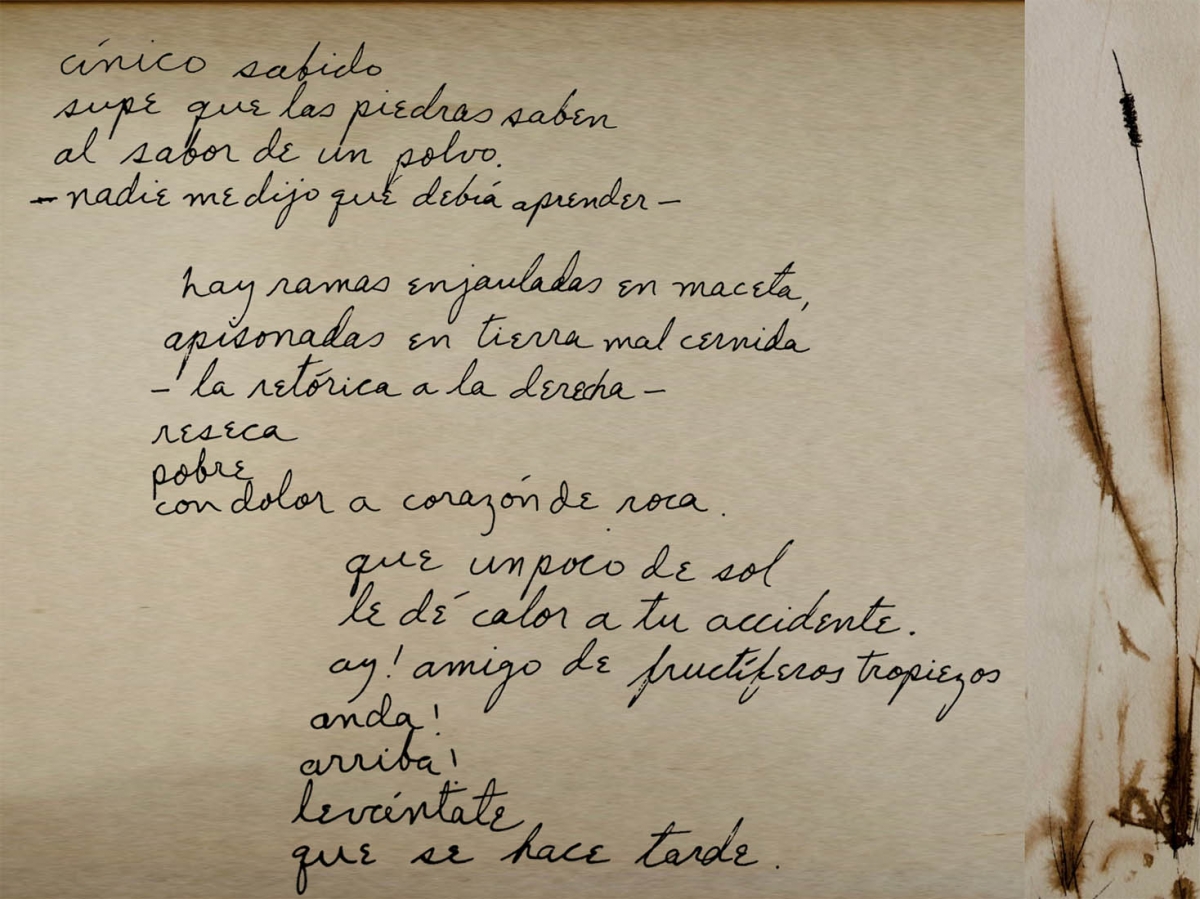 cínico sabido
supe que las piedras saben
al sabor de un polvo.
- nadie me dijo qué debía aprender -
hay ramas enjauladas en maceta,
apisonadas en tierra mal cernida
- la retórica a la derecha -
reseca
pobre
con dolor a corazón de roca.
que un poco de sol
le dé calor a tu accidente.
ay! amigo de fructíferos tropiezos
anda!
arriba!
levántate
que se hace tarde.